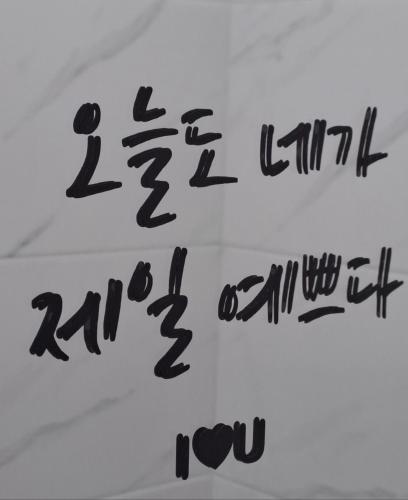 오늘도 네가
제일 예쁘다
I♥U